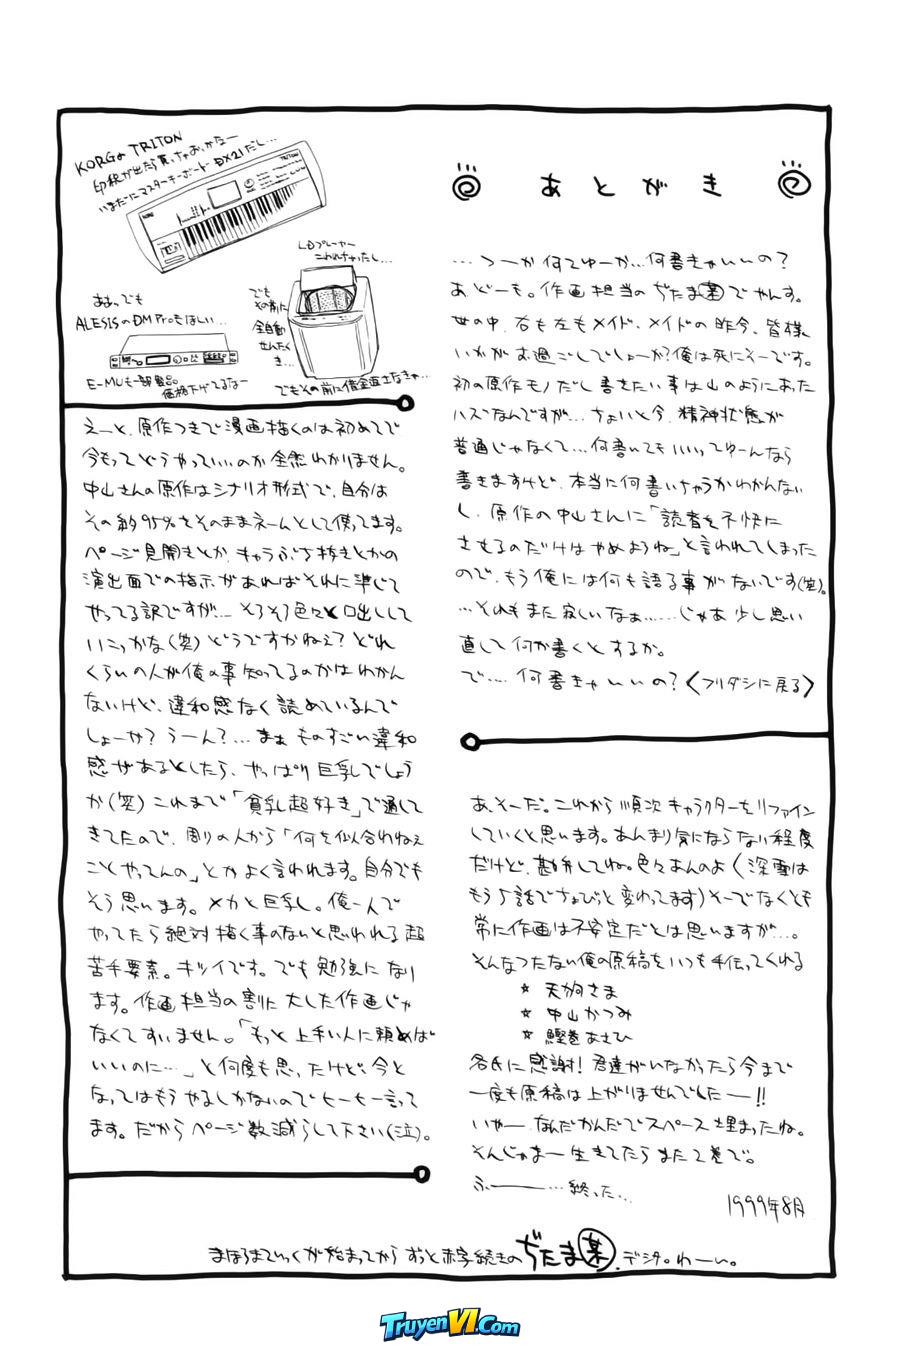 あとがき
…つーか何てゆーか…何書きゃいいの？
あ どーも。作画担当のぢたま某でやんす。
世の中、右も左もメイド、メイドの昨今、皆様
いかがお過ごしでしょーか？俺は死にそーです。
初の原作モノだし書きたい事は山のようにあった
ハズなんですが…ちょいと今、精神状態が
普通じゃなくて…何書いてもいいってゆーんなら
書きますけど、本当に何書いちゃうかわかんない
し、原作の中山さんに「読者を不快に
させるのだけはやめようね」と言われてしまった
ので、もう俺には何も語る事がないです(笑)。
…それもまた寂しいなぁ……じゃあ少し思い
直して何か書くとするか。
で…何書きゃいいの？〈フリダシに戻る〉
あ、そーだ。これから順次キャラクターをリファイン
していくと思います。あんまり気にならない程度
だけど、勘弁してね。色々あんのよ(深雪は
もう5話でちょびっと変わってます)そーでなくとも
常に作画は不安定だとは思いますが…。
そんなつたない俺の原稿をいつも手伝ってくれる
☆ 天狗さま
☆ 中山かつみ
☆ 鰹巻あさひ
各氏に感謝！君達がいなかったら今まで
一度も原稿は上がりませんでしたー!!
いやーなんだかんだでスペース埋まったね。
そんじゃまー生きてたらまた2巻で。
ふーー…終った…
1999年8月
KORGのTRITON
印税が出たら買っちゃおっかなー
いまだにマスターキーボードDX21だし…
TRITON
KORG
LDプレーヤー
こわれちゃったし…
ああ、でも
ALESISのDM Proもほしい…
E-MUも一部製品
価格下げてるなー
でも
その前に
全自動
せんたく
き…
でもその前に借金返さなきゃ…
えーと、原作つきで漫画描くのは初めてで
今もってどうやっていいのか全然わかりません。
中山さんの原作はシナリオ形式で、自分は
その約95%をそのままネームとして使ってます。
ページ見開きとか、キャラぶち抜きとかの
演出面での指示があればそれに準じて
やってる訳ですが…そろそろ色々と口出しして
いこっかな(笑)どうですかねぇ？どれ
くらいの人が俺の事知ってるのかはわかん
ないけど、違和感なく読めているんで
しょーか？うーん？…まぁ ものすごい違和
感があるとしたら、やっぱり巨乳でしょう
か(笑)これまで「貧乳超好き」で通して
きてたので、周りの人から「何を似合わねぇ
ことやってんの」とかよく言われます。自分でも
そう思います。メカと巨乳し。俺一人で
やってたら絶対描く事のないと思われる超
苦手要素。キツイです。でも勉強になり
ます。作画担当の割に大した作画じゃ
なくてすいません。「もっと上手い人に頼めば
いいのに…」と何度も思ったけど、今と
なってはもうやるしかないのでヒーヒー言って
ます。だからページ数減らして下さい(泣)。
まほろまてぃっくが始まってからずっと赤字続きのぢたま某、デシタ。わーい。
TruyenVI.Com